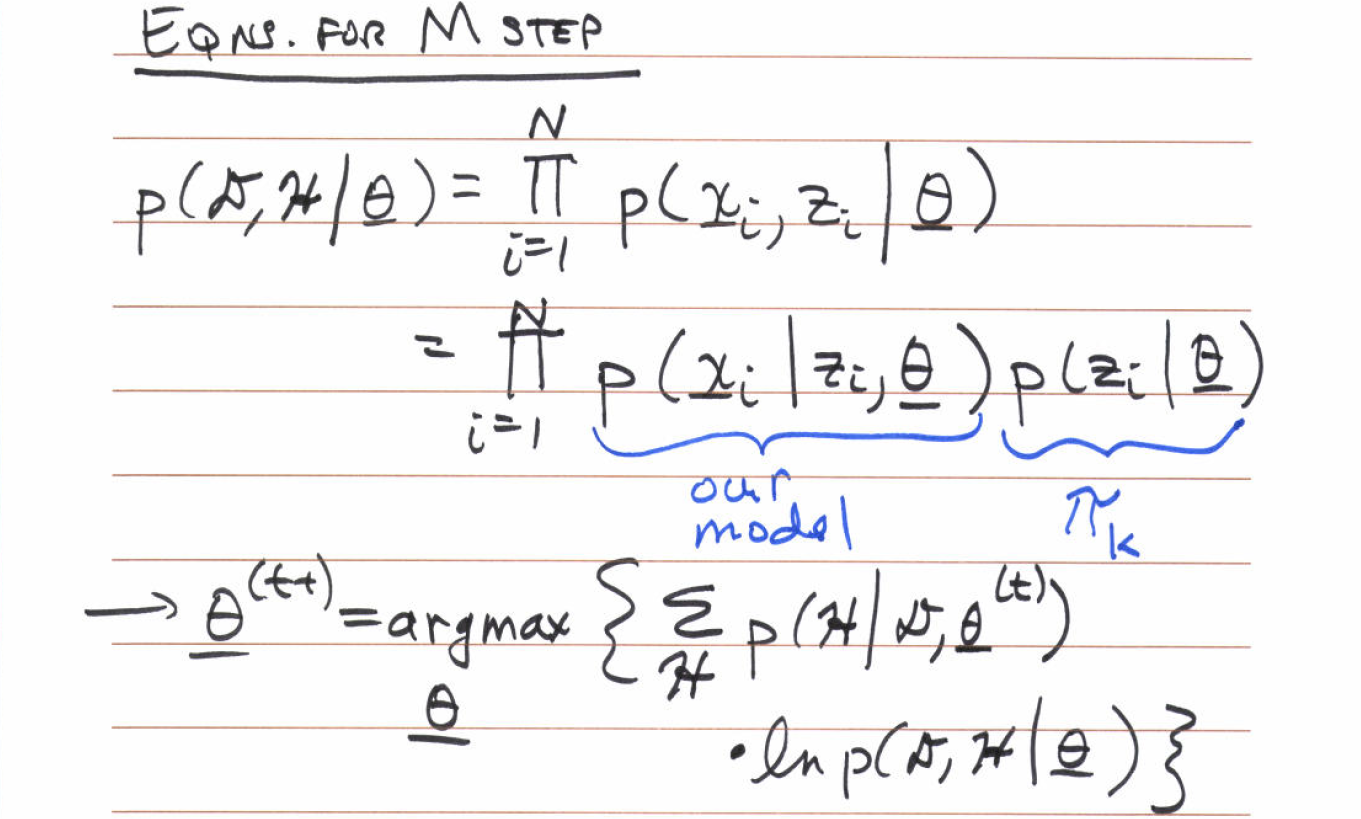 EQNS. FOR M STEP
p(𝒟, ℋ | θ̲) = ∏_{i=1}^{N} p(x̲_i, z_i | θ̲)
= ∏_{i=1}^{N} p(x̲_i | z_i, θ̲) p(z_i | θ̲)
our model π_k
→ θ̲^{(t+)} = argmax_{θ̲} { ∑_ℋ p(ℋ | 𝒟, θ̲^{(t)})
• ln p(𝒟, ℋ | θ̲) }